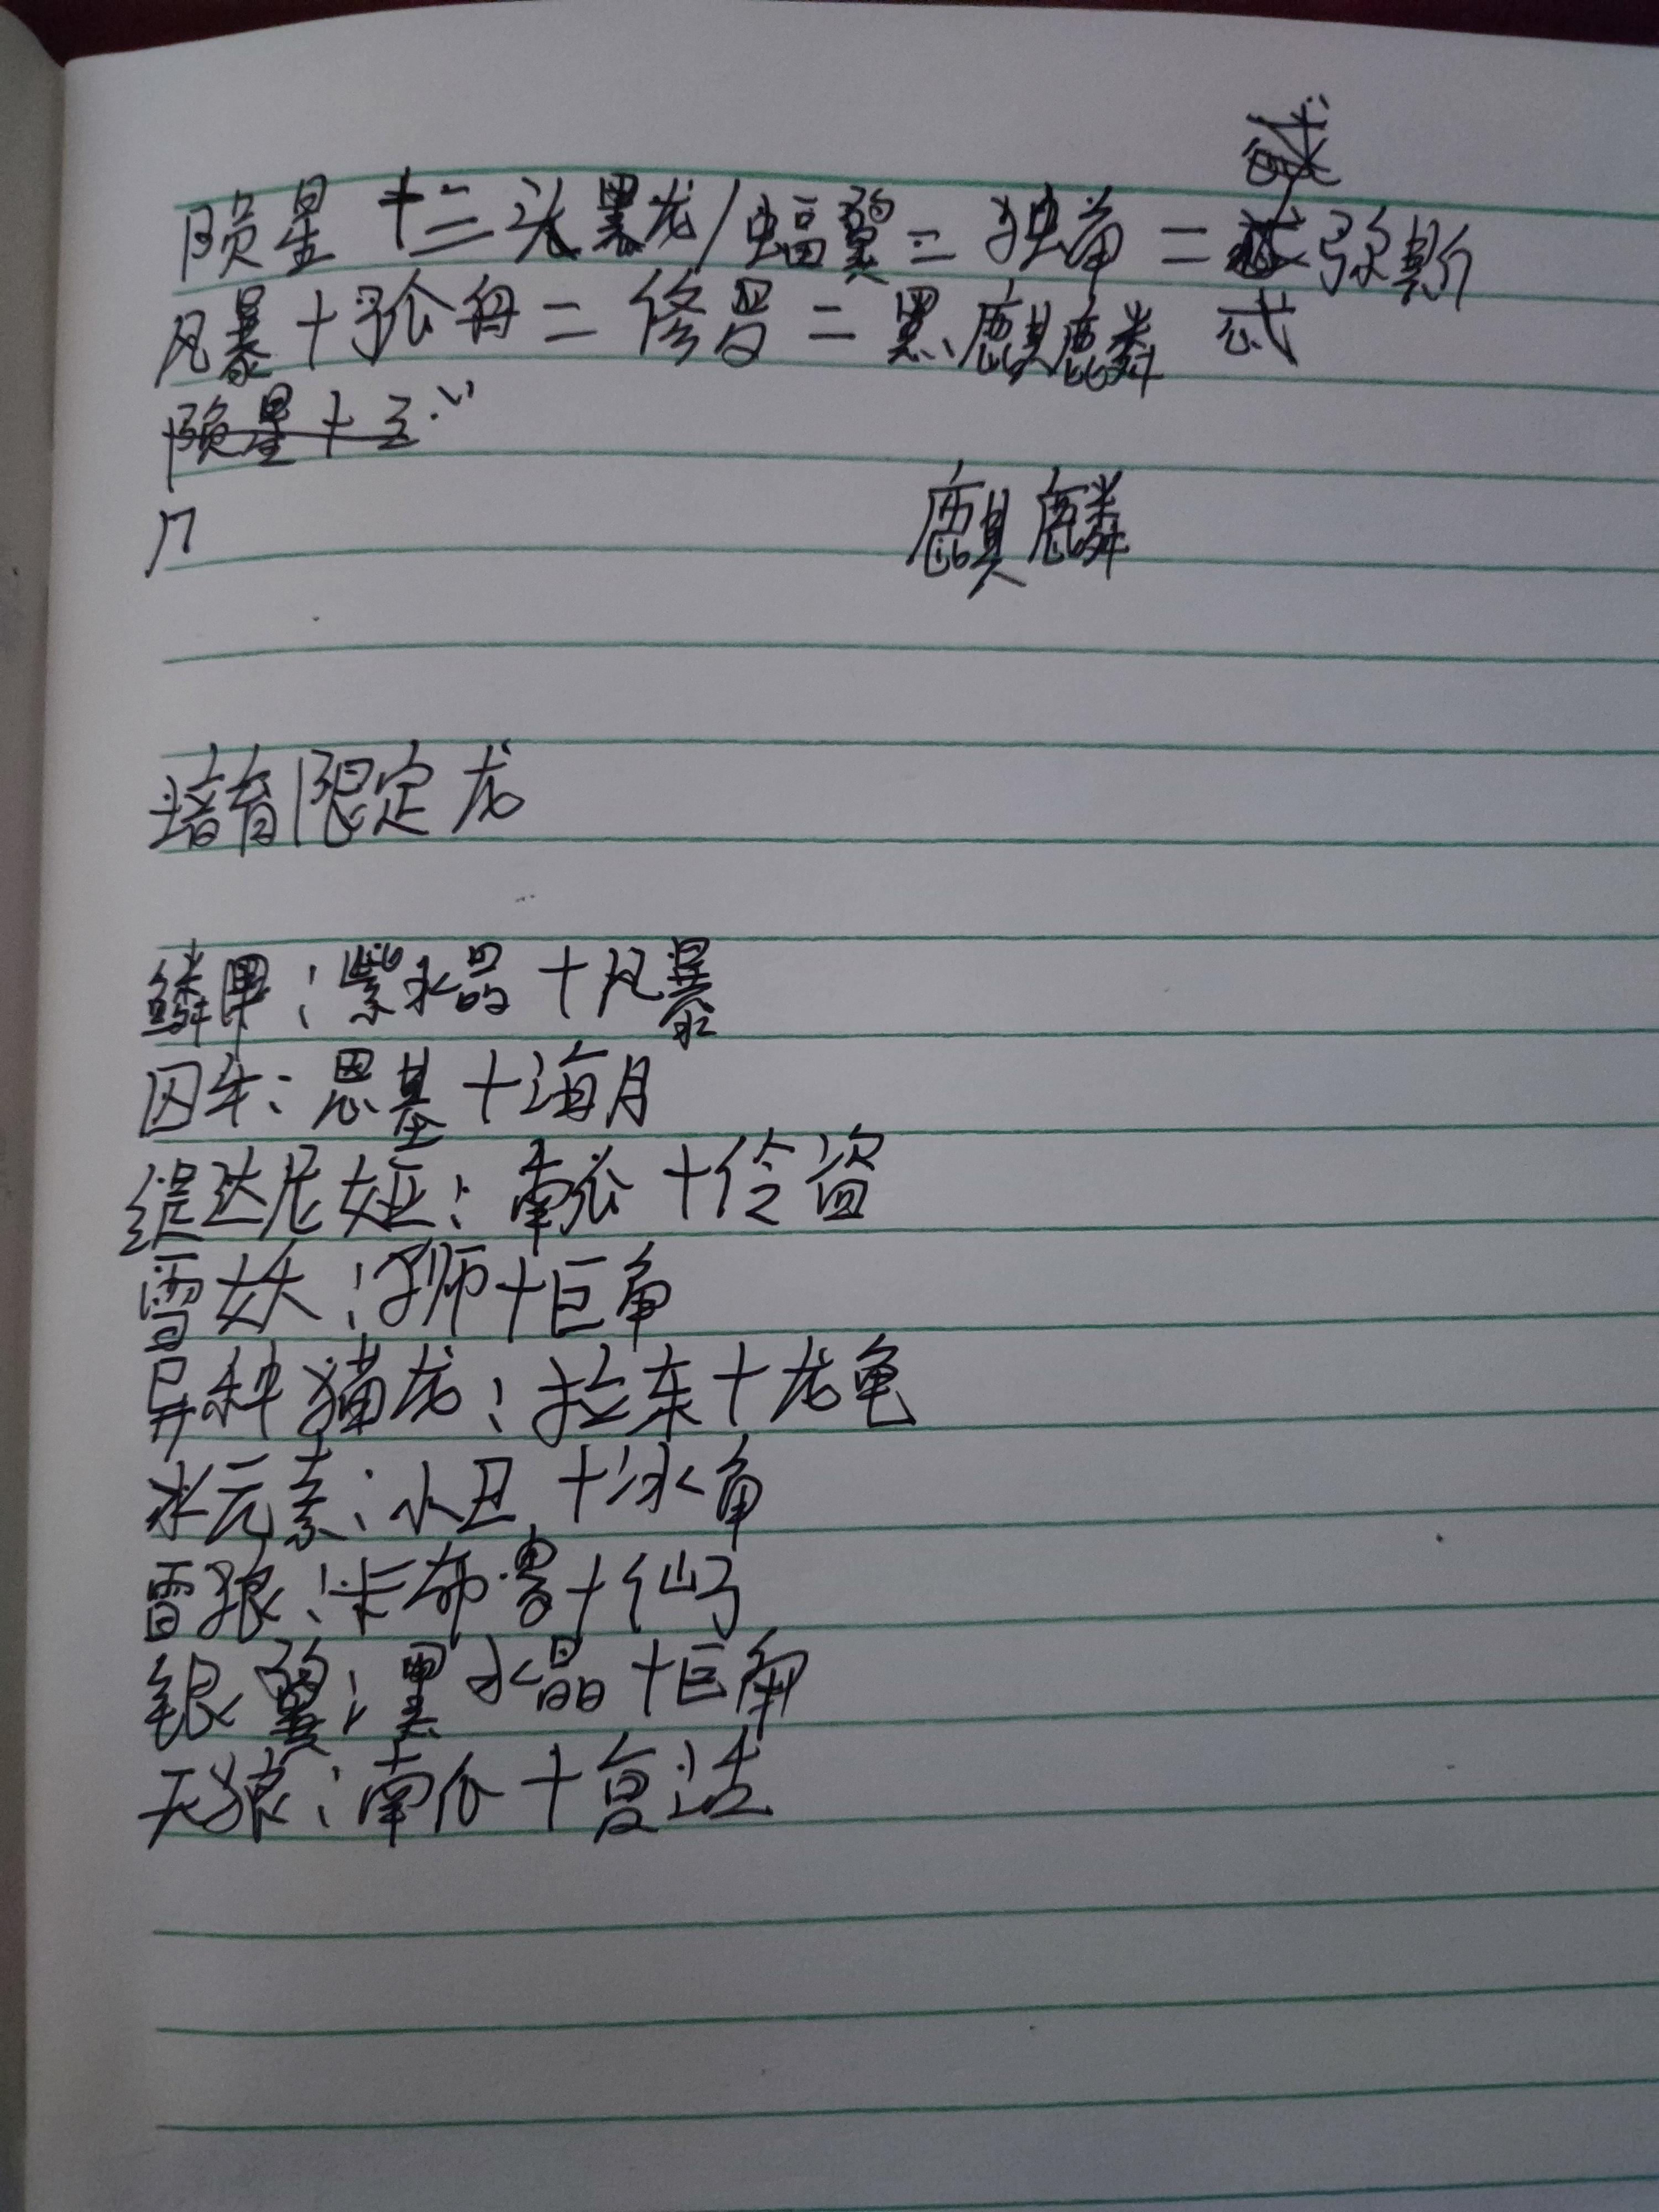 陨星十三头黑龙/蝠翼=独角=忒弥斯
风暴十孤舟=修罗=黑麒麟 忒
陨星十三
几 麒麟
培育限定龙
鳞果:紫水晶十风暴
囚牛:恩基十海月
缇达尼娅:南瓜十伶盗
雪女夭:狮十巨角
异种猫龙:拉东十龙龟
水元素:小丑十冰角
雷狼:卡布鲁十仙子
银翼:黑水晶十巨角
天狼:南瓜十复活